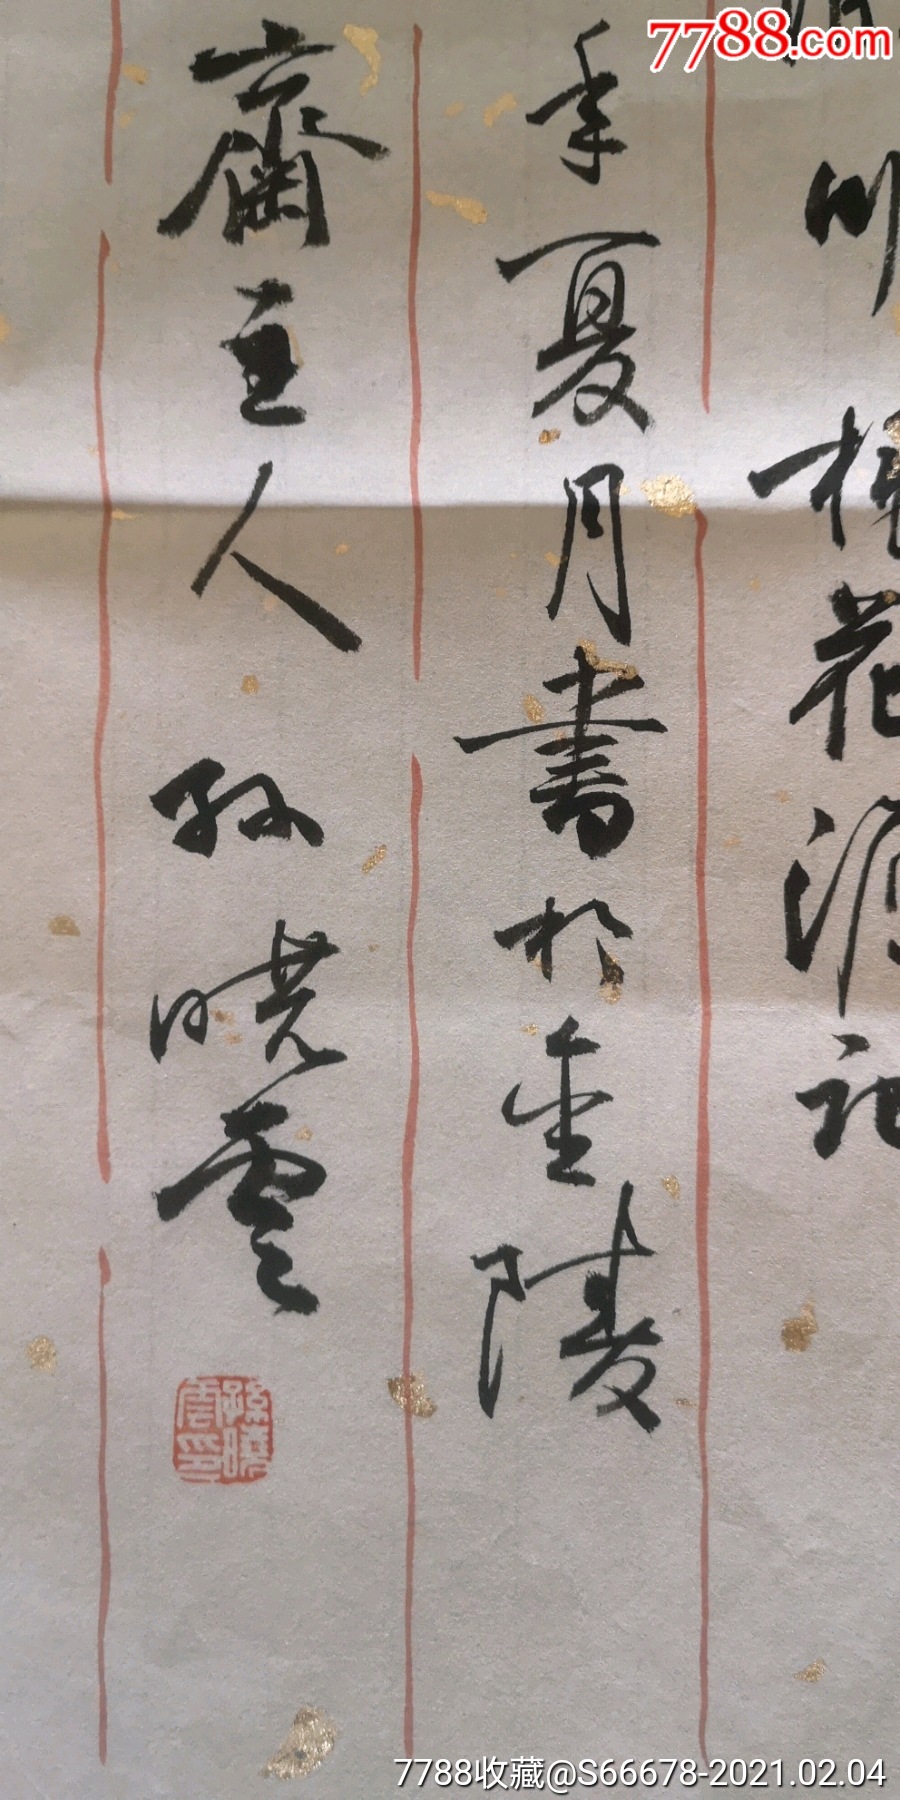 7788.com
川桃花源记
年夏月書於金陵
齋主人 孙晓雲
孫曉雲印
7788收藏@S66678-2021.02.04